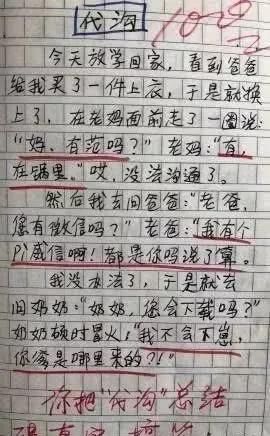 代沟
100
今天放学回家，看到爸爸
给我买了一件上衣，于是就换
上了，在老妈面前走了一圈说：
“妈，有范吗？”老妈：“有，
在锅里。”哎，没法沟通了。
然后我去问爸爸：“老爸，
您有微信吗？”老爸：“我有个
P威信啊！都是你妈说了算。
我没办法了，于是就去
问奶奶：“奶奶，您会下载吗？”
奶奶顿时冒火：“我不会下崽，
你爹是哪里来的？！”
你把“代沟”总结